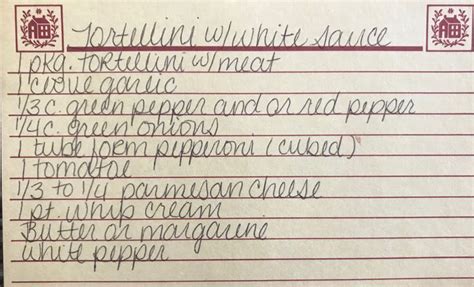 Tortellini w/white sauce
1 pkg. tortellini w/meat
1 clove garlic
1/3 c. green pepper and or red pepper
1/4 c. green onions
1 tube form pepperoni (cubed)
1 tomatoe
1/3 to 1/4 parmesan cheese
1 pt. whip cream
Butter or margarine
white pepper